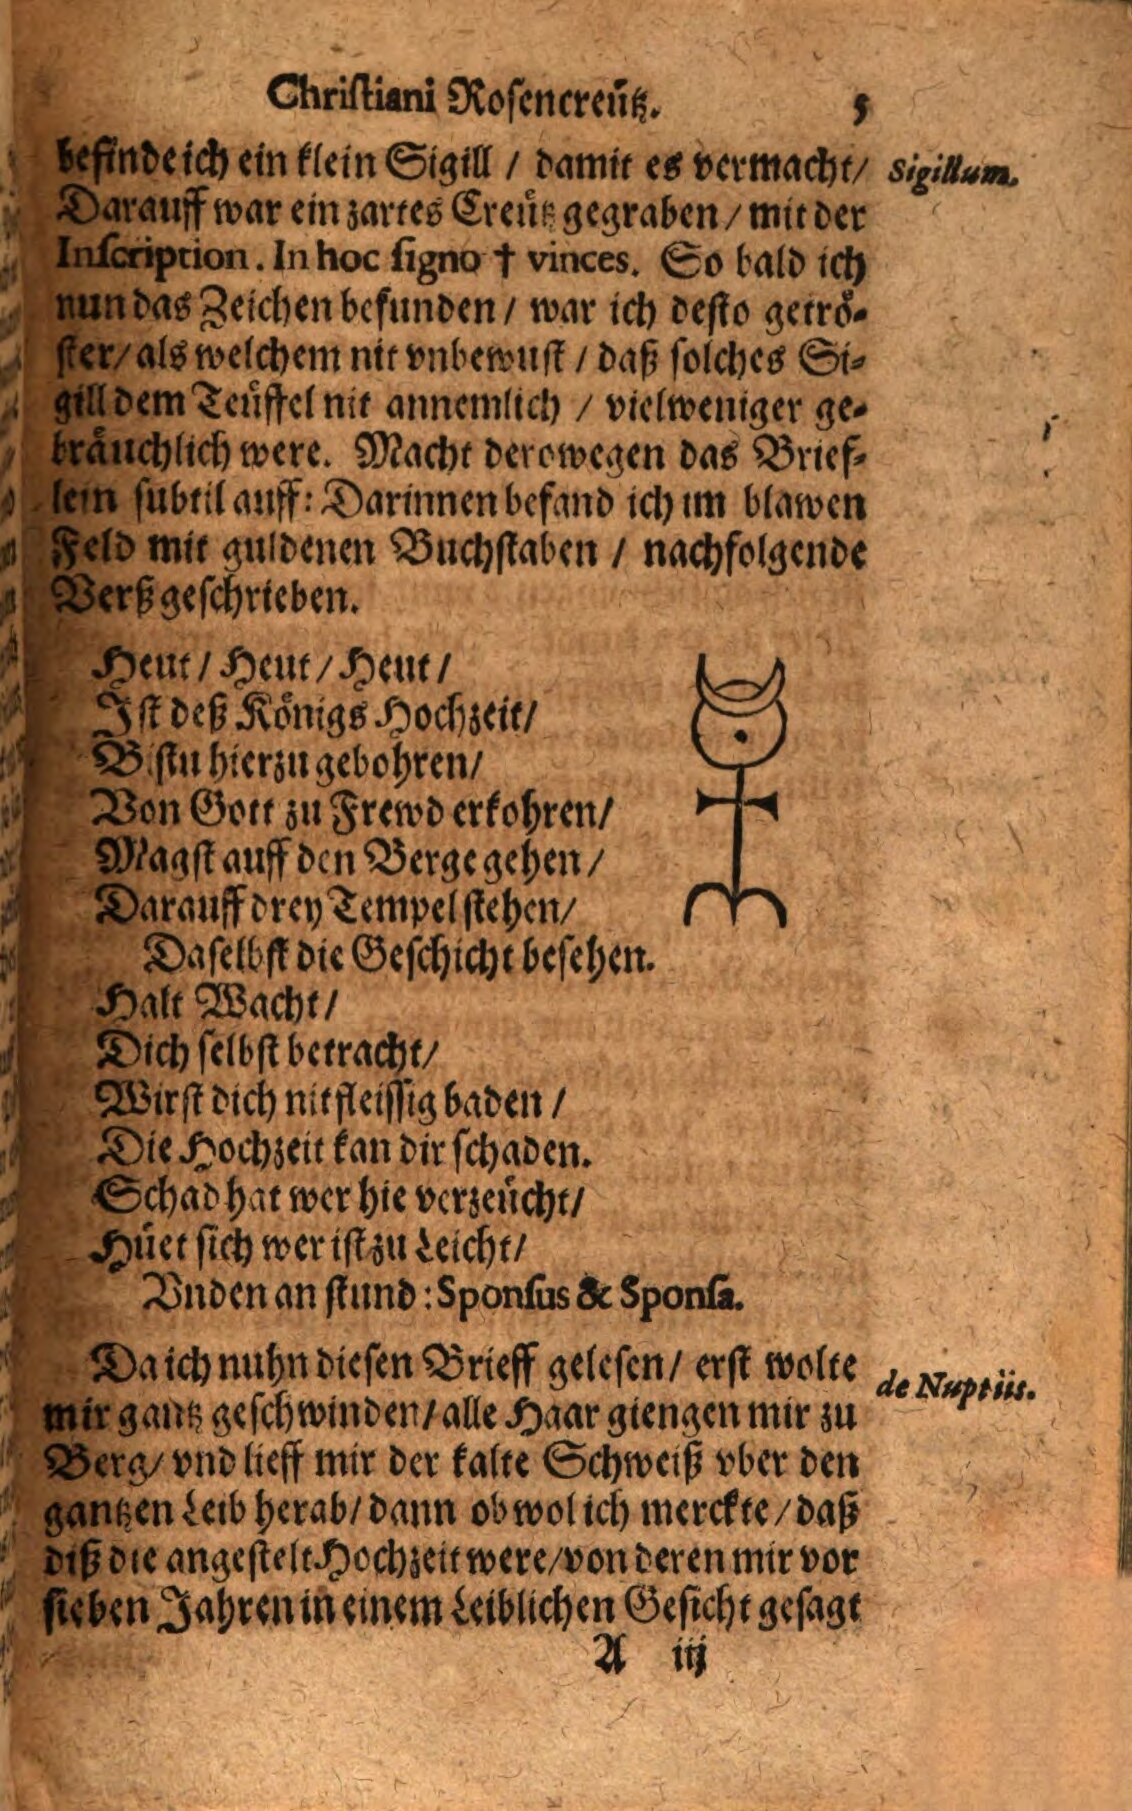 Christiani Rosencreütz. 5
befinde ich ein klein Sigill / damit es vermacht/ Sigillum.
Darauff war ein zartes Creütz gegraben / mit der
Inscription. In hoc signo † vinces. So bald ich
nun das Zeichen befunden / war ich desto getrö-
ster/ als welchem nit vnbewust / daß solches Si-
gill dem Teüffel nit annemlich / vielweniger ge-
bräuchlich were. Macht derowegen das Brief-
lein subtil auff: Darinnen befand ich im blawen
Feld mit guldenen Buchstaben / nachfolgende
Verß geschrieben.
Heut / Heut / Heut /
Ist deß Königs Hochzeit/
Bistu hierzu gebohren/
Von Gott zu Frewd erkohren/
Magst auff den Berge gehen /
Darauff drey Tempel stehen/
Daselbst die Geschicht besehen.
Halt Wacht/
Dich selbst betracht/
Wirst dich nit fleissig baden /
Die Hochzeit kan dir schaden.
Schad hat wer hie verzeücht/
Hüet sich wer ist zu Leicht/
Vnden an stund: Sponsus & Sponsa.
Da ich nuhn diesen Brieff gelesen/ erst wolte de Nuptiis.
mir gantz geschwinden/ alle Haar giengen mir zu
Berg/ vnd lieff mir der kalte Schweiß vber den
gantzen Leib herab/ dann ob wol ich merckte / daß
diß die angestelt Hochzeit were/ von deren mir vor
sieben Jahren in einem Leiblichen Gesicht gesagt
A iij